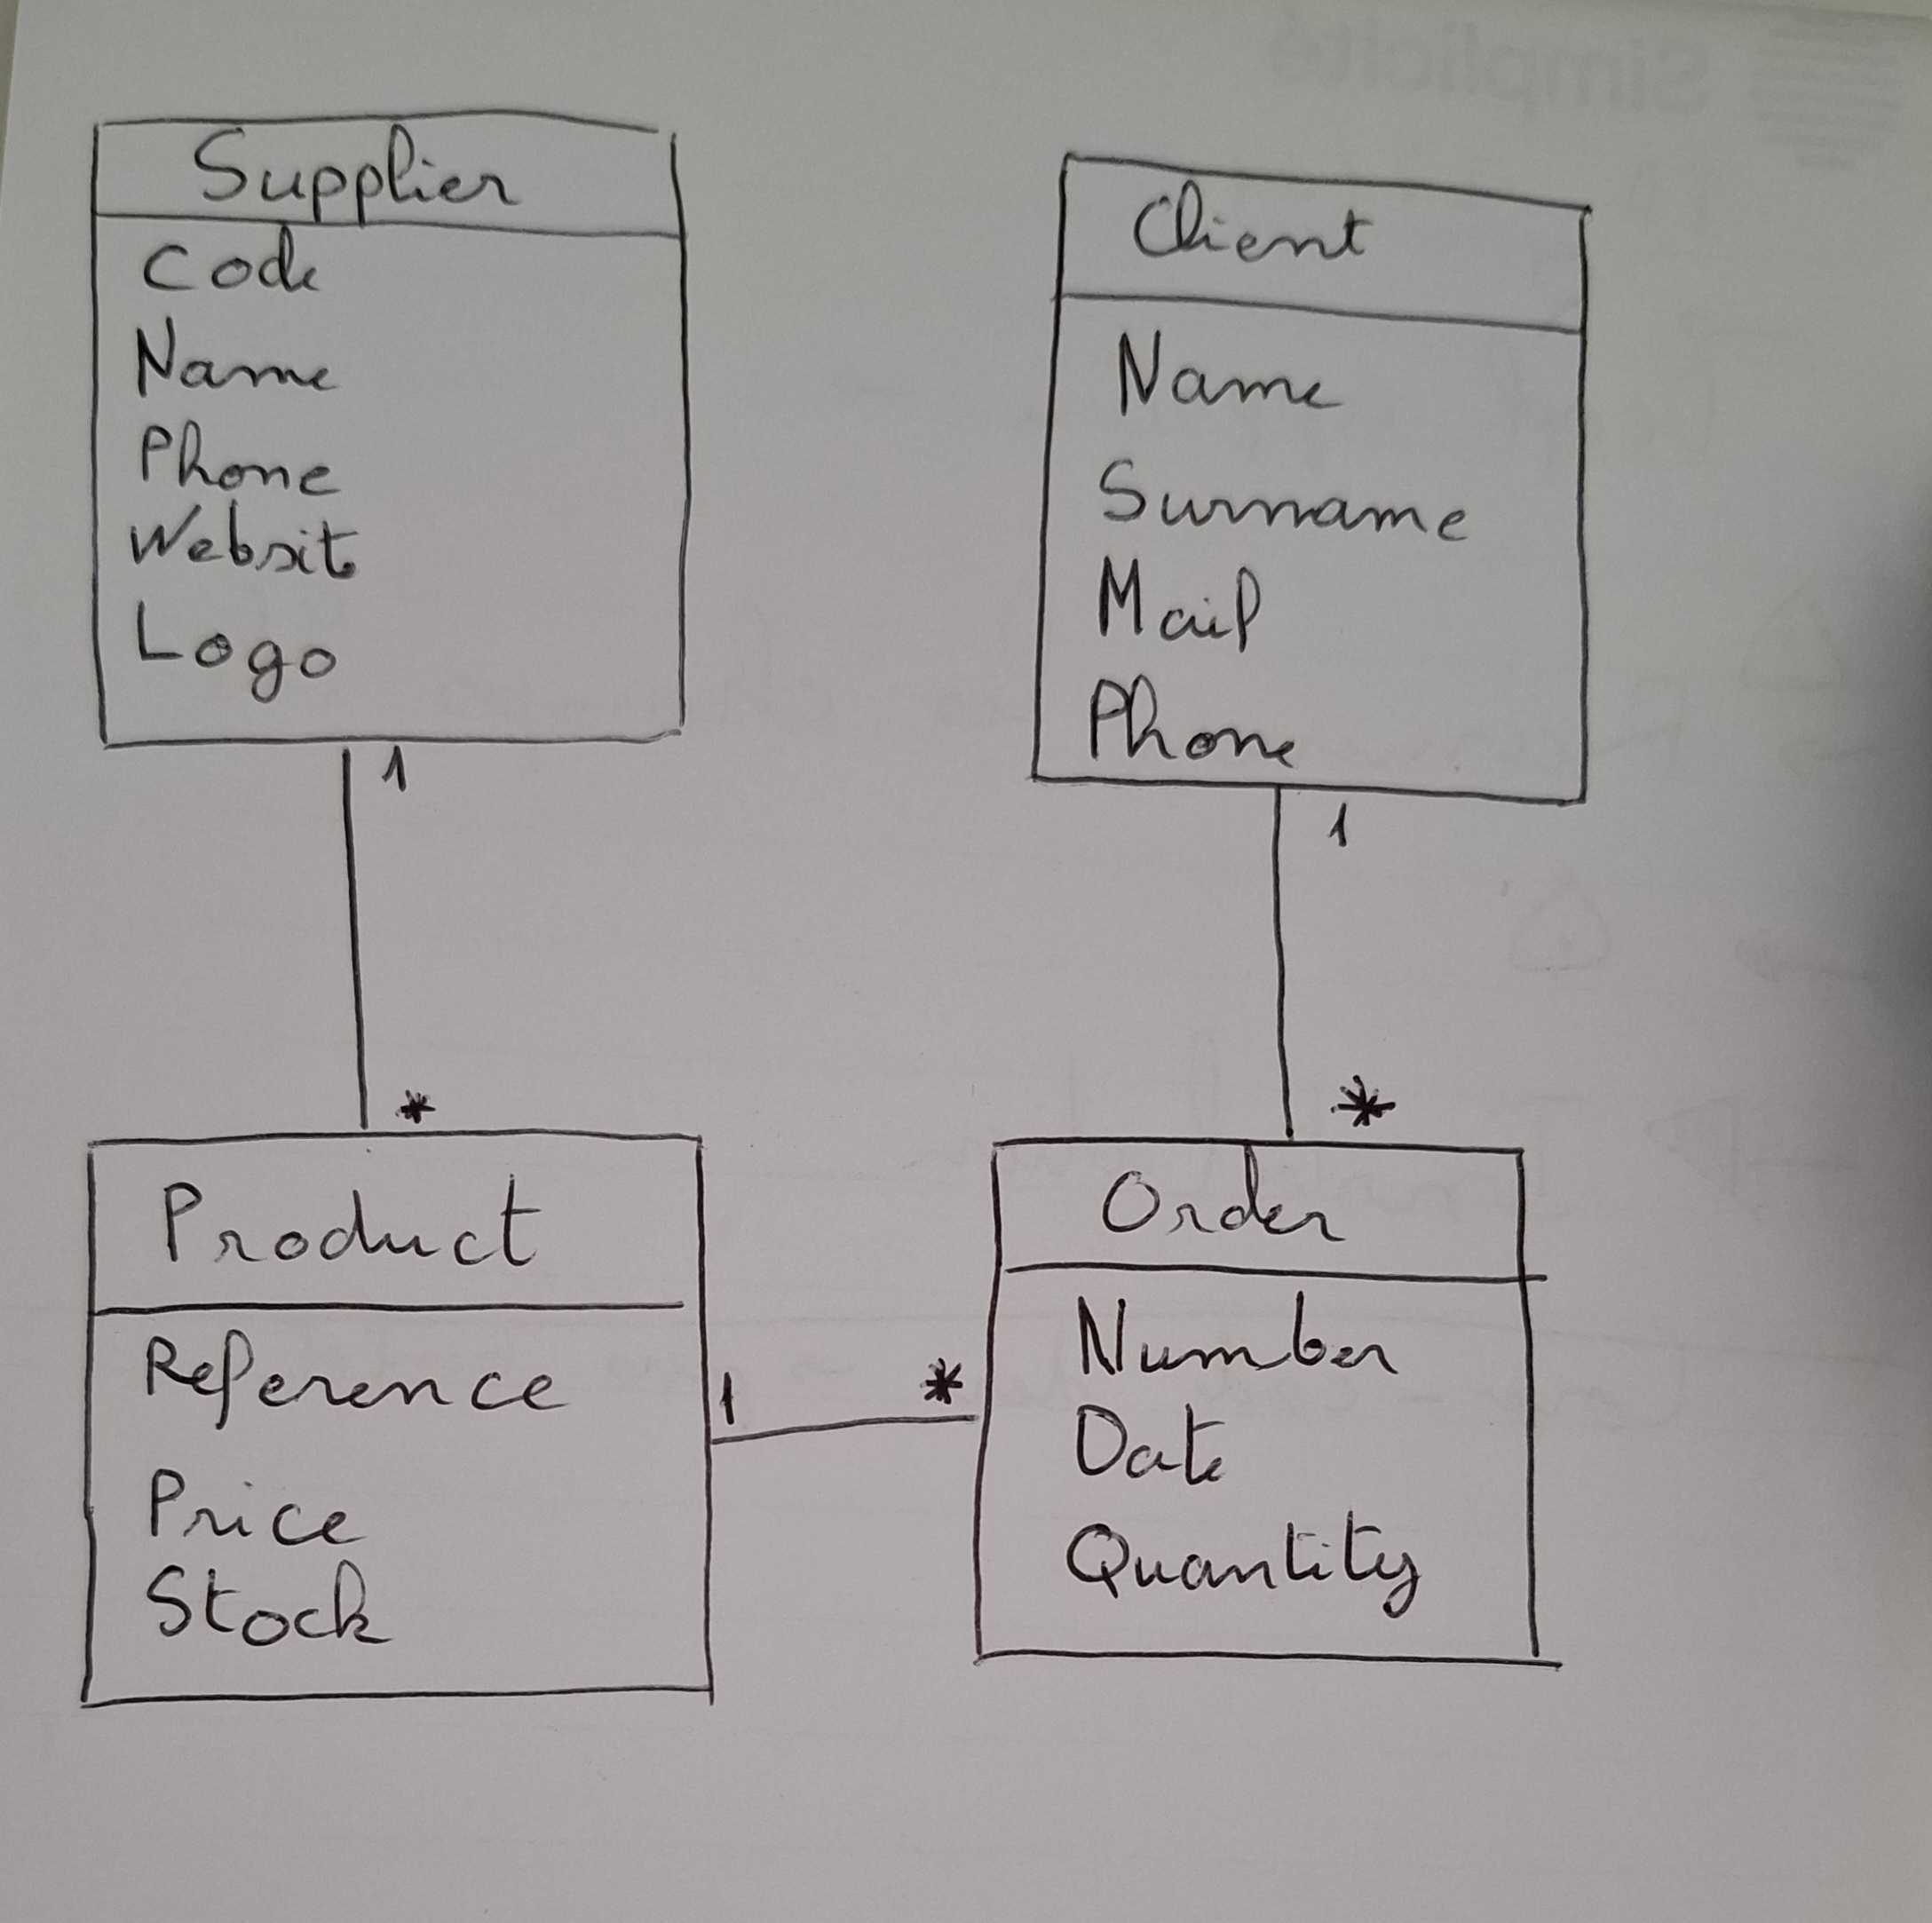 Simplicité
Supplier
Code
Name
Phone
Website
Logo
1
*
Client
Name
Surname
Mail
Phone
1
*
Product
Reference
Price
Stock
1
*
Order
Number
Date
Quantity